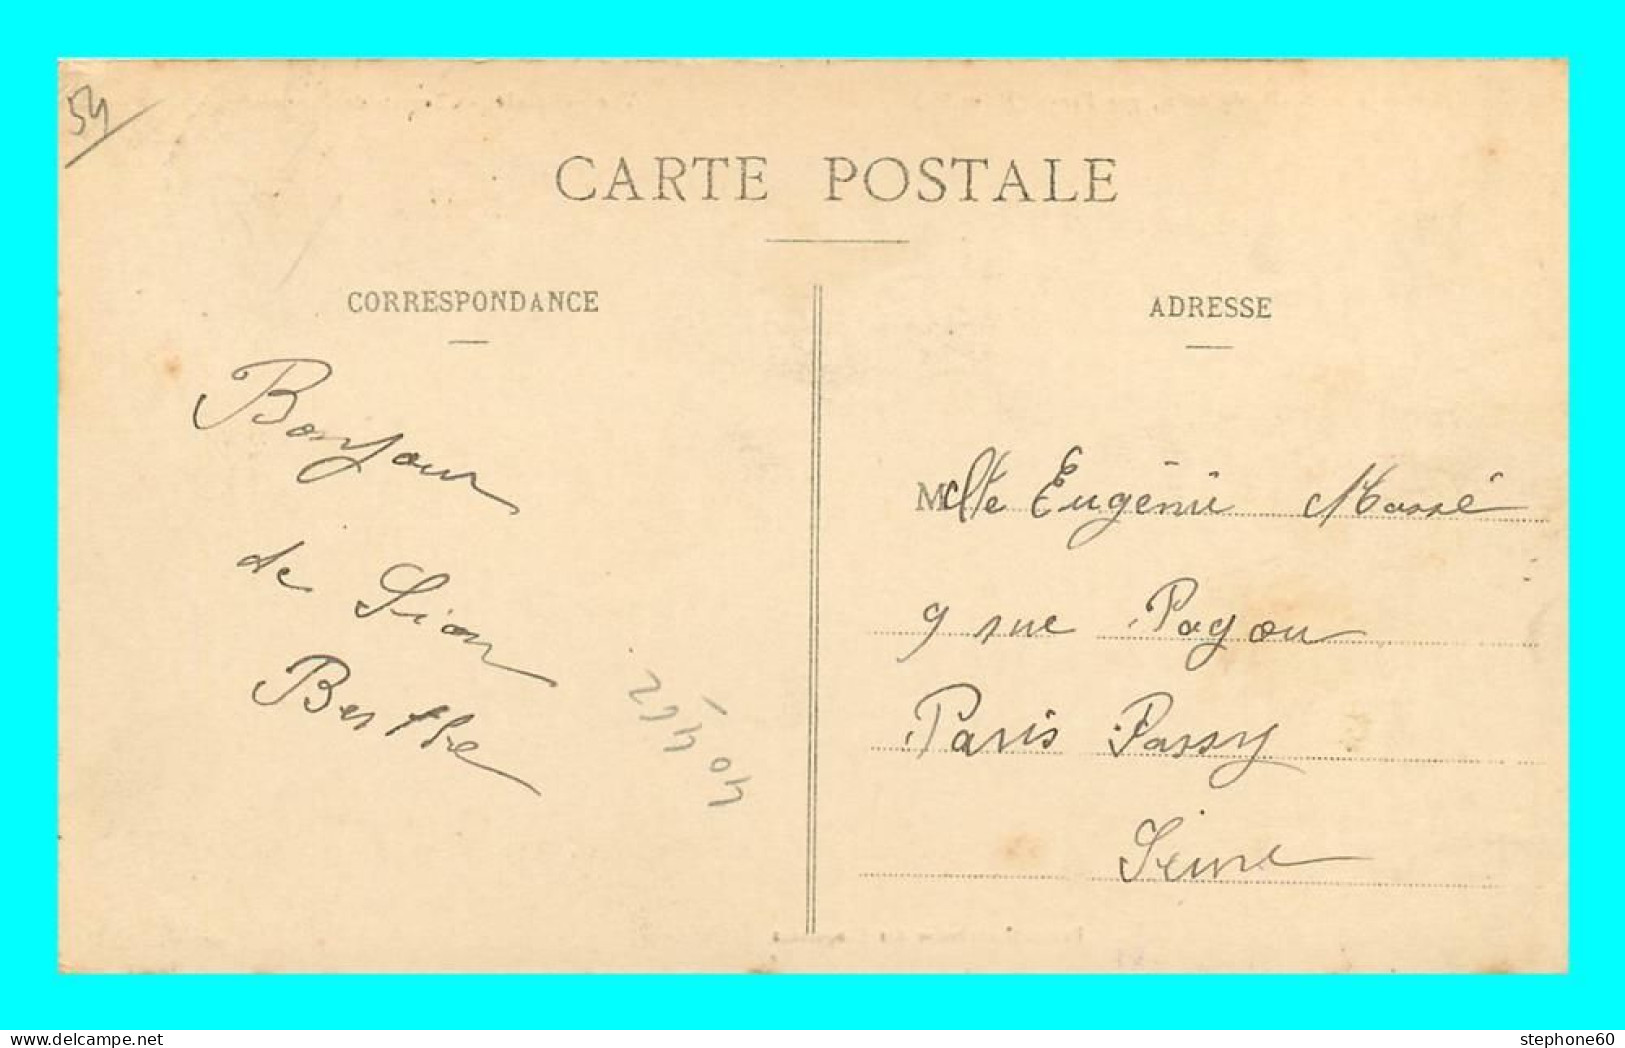 54
CARTE POSTALE
CORRESPONDANCE
Bonjour
de Sion
Berthe
ADRESSE
Mlle Eugénie Massé
9 rue Pagou
Paris Passy
Seine
stephone60